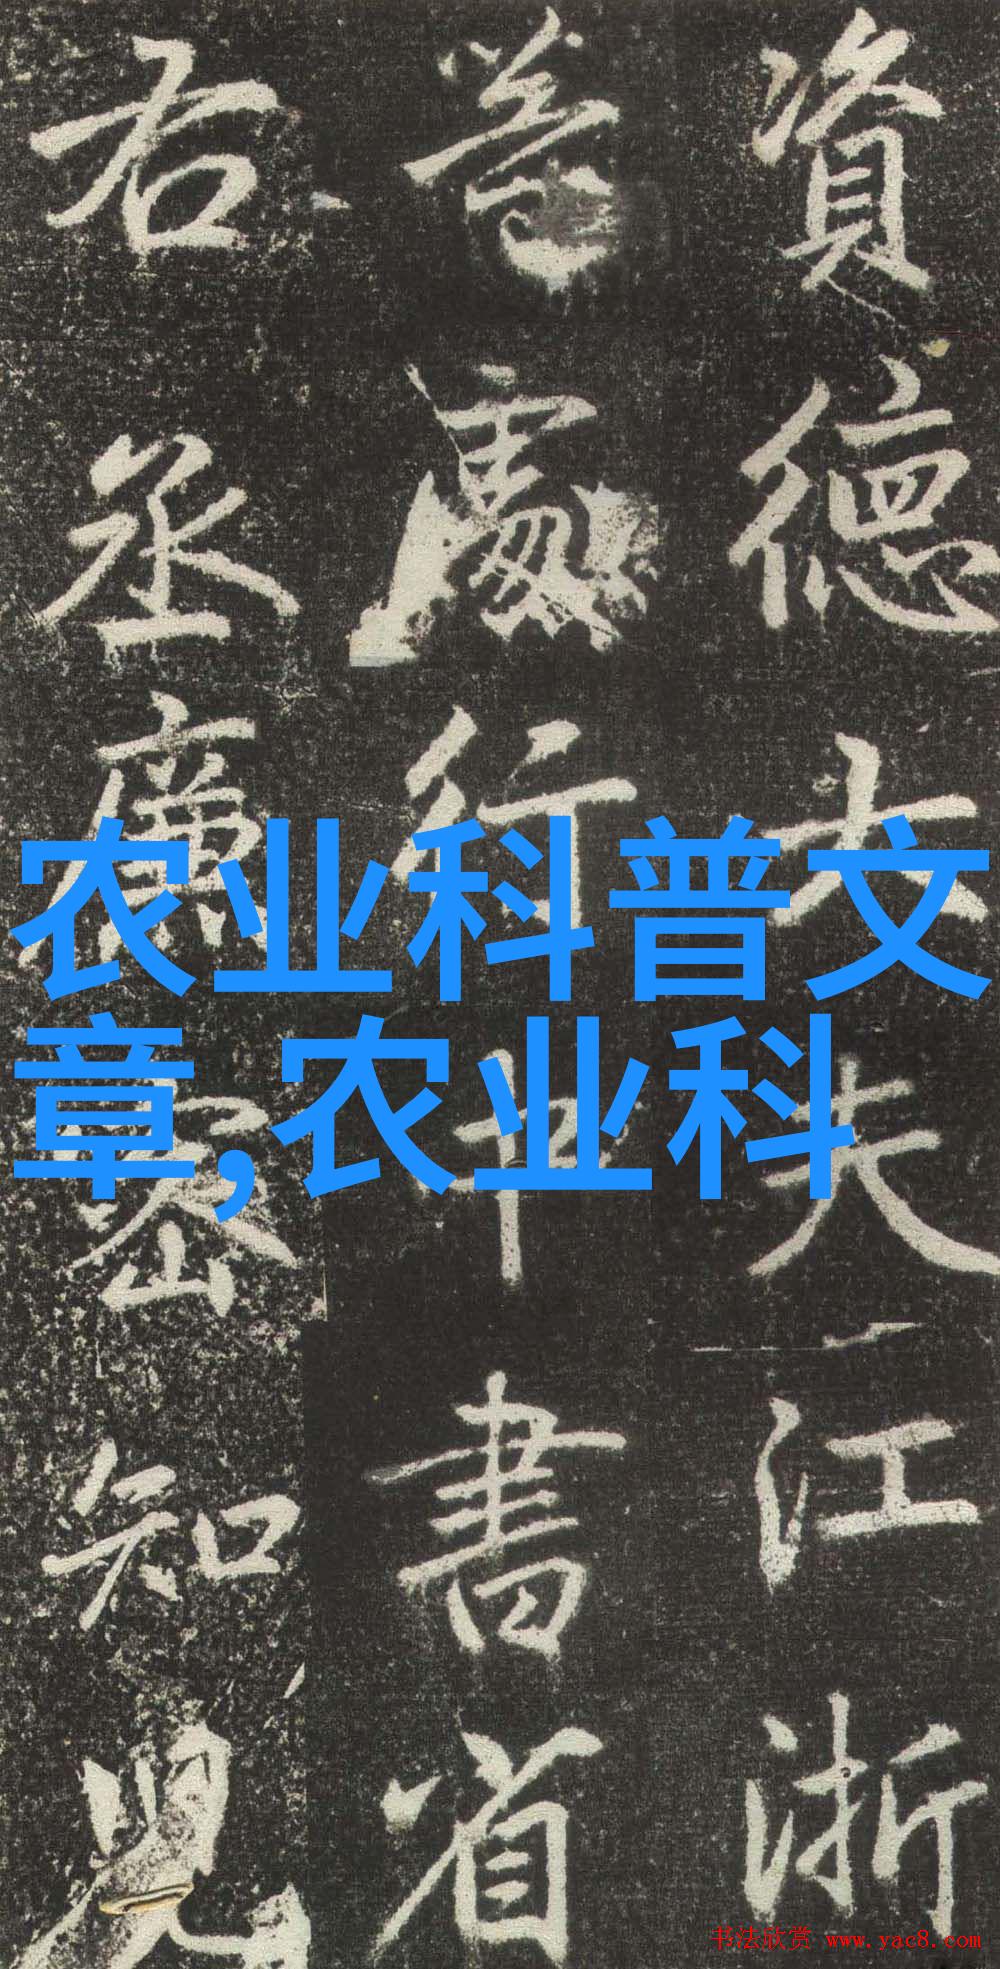 資德大夫江浙
等處行中書省
右丞廉密知兒
农业科普文
章,农业科
书法欣赏 www.yac8.com